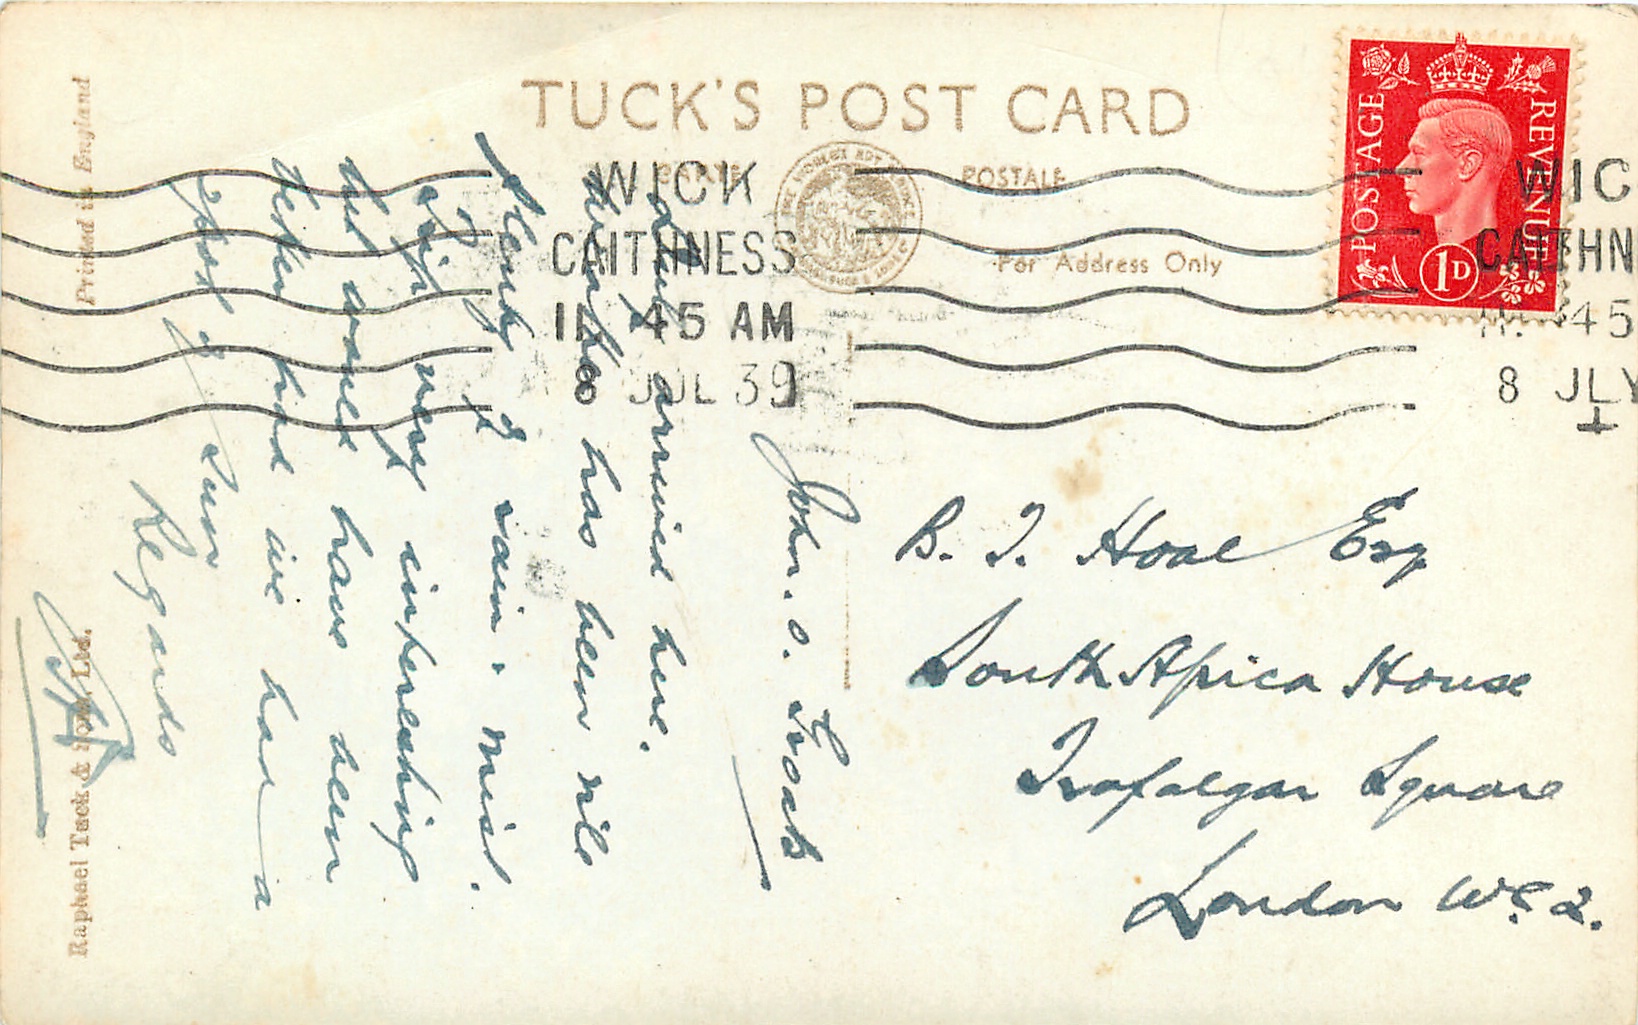 TUCK'S POST CARD
CARTE POSTALE
For Address Only
POSTAGE REVENUE
1D
WICK
CAITHNESS
45 AM
8 JUL 39
WIC
CAITHN
45
8 JLY
B. T. Hoal Esq
South Africa House
Trafalgar Square
London W.C.2.
John. o. Groats
duly arrived here.
Weather has been vile
Plenty of rain & mist.
Trip very interesting
but would have been
better had we had a
spot of sun
Regards
Printed in England
Raphael Tuck & Sons Ltd.